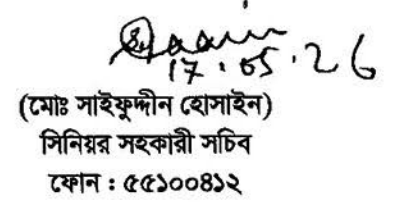 17.05.26
(মোঃ সাইফুদ্দীন হোসাইন)
সিনিয়র সহকারী সচিব
ফোন : ৫৫১০০৪১২